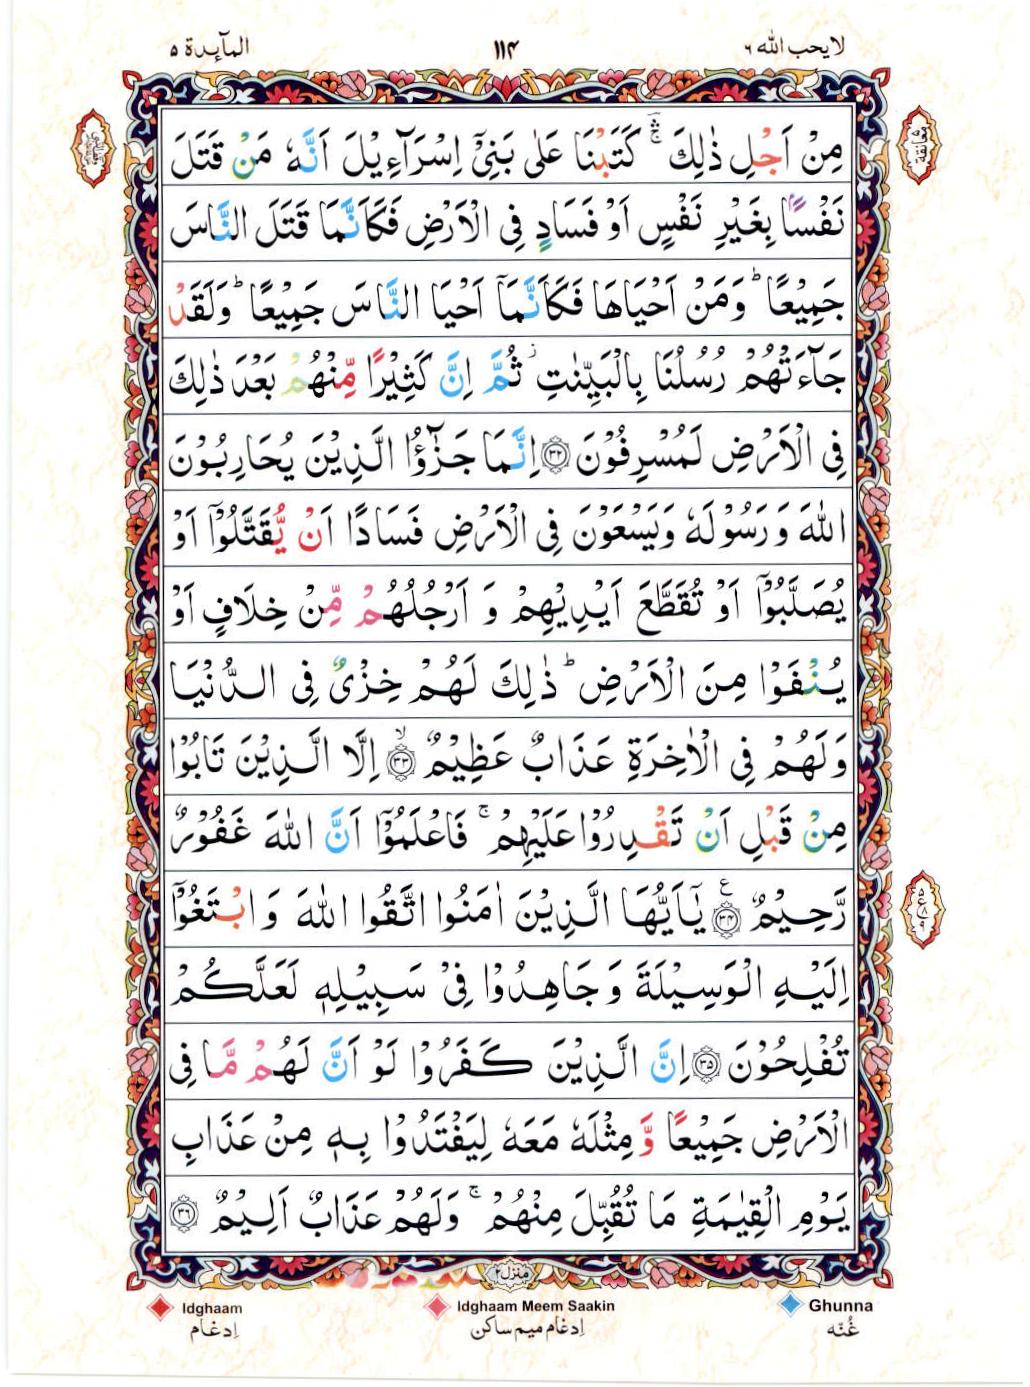 لا يحب الله ٦
١١٤
المآىِٕدة ٥
مِنْ اَجْلِ ذٰلِكَ ۛۚ كَتَبْنَا عَلٰى بَنِىْۤ اِسْرَآءِيْلَ اَنَّهٗ مَنْ قَتَلَ
نَفْسًۢا بِغَيْرِ نَفْسٍ اَوْ فَسَادٍ فِى الْاَرْضِ فَكَاَنَّمَا قَتَلَ النَّاسَ
جَمِيْعًا ؕ وَمَنْ اَحْيَاهَا فَكَاَنَّمَاۤ اَحْيَا النَّاسَ جَمِيْعًا ؕ وَلَقَدْ
جَآءَتْهُمْ رُسُلُنَا بِالْبَيِّنٰتِ ز ثُمَّ اِنَّ كَثِيْرًا مِّنْهُمْ بَعْدَ ذٰلِكَ
فِى الْاَرْضِ لَمُسْرِفُوْنَ ﴿۳۲﴾ اِنَّمَا جَزٰٓؤُا الَّذِيْنَ يُحَارِبُوْنَ
اللّٰهَ وَ رَسُوْلَهٗ وَيَسْعَوْنَ فِى الْاَرْضِ فَسَادًا اَنْ يُّقَتَّلُوْۤا اَوْ
يُصَلَّبُوْۤا اَوْ تُقَطَّعَ اَيْدِيْهِمْ وَ اَرْجُلُهُمْ مِّنْ خِلَافٍ اَوْ
يُنْفَوْا مِنَ الْاَرْضِ ؕ ذٰلِكَ لَهُمْ خِزْىٌ فِى الدُّنْيَا
وَلَهُمْ فِى الْاٰخِرَةِ عَذَابٌ عَظِيْمٌ ﴿۳۳﴾ۙ اِلَّا الَّذِيْنَ تَابُوْا
مِنْ قَبْلِ اَنْ تَقْدِرُوْا عَلَيْهِمْ ۚ فَاعْلَمُوْۤا اَنَّ اللّٰهَ غَفُوْرٌ
رَّحِيْمٌ ﴿۳۴﴾ ع يٰۤاَيُّهَا الَّذِيْنَ اٰمَنُوا اتَّقُوا اللّٰهَ وَ ابْتَغُوْۤا
اِلَيْهِ الْوَسِيْلَةَ وَ جَاهِدُوْا فِىْ سَبِيْلِهٖ لَعَلَّكُمْ
تُفْلِحُوْنَ ﴿۳۵﴾ اِنَّ الَّذِيْنَ كَفَرُوْا لَوْ اَنَّ لَهُمْ مَّا فِى
الْاَرْضِ جَمِيْعًا وَّ مِثْلَهٗ مَعَهٗ لِيَفْتَدُوْا بِهٖ مِنْ عَذَابِ
يَوْمِ الْقِيٰمَةِ مَا تُقُبِّلَ مِنْهُمْ ۚ وَلَهُمْ عَذَابٌ اَلِيْمٌ ﴿۳۶﴾
معانقة
منزل ٢
Idghaam
Idghaam Meem Saakin
Ghunna
اِدغام
اِدغام میم ساکن
غُنّه